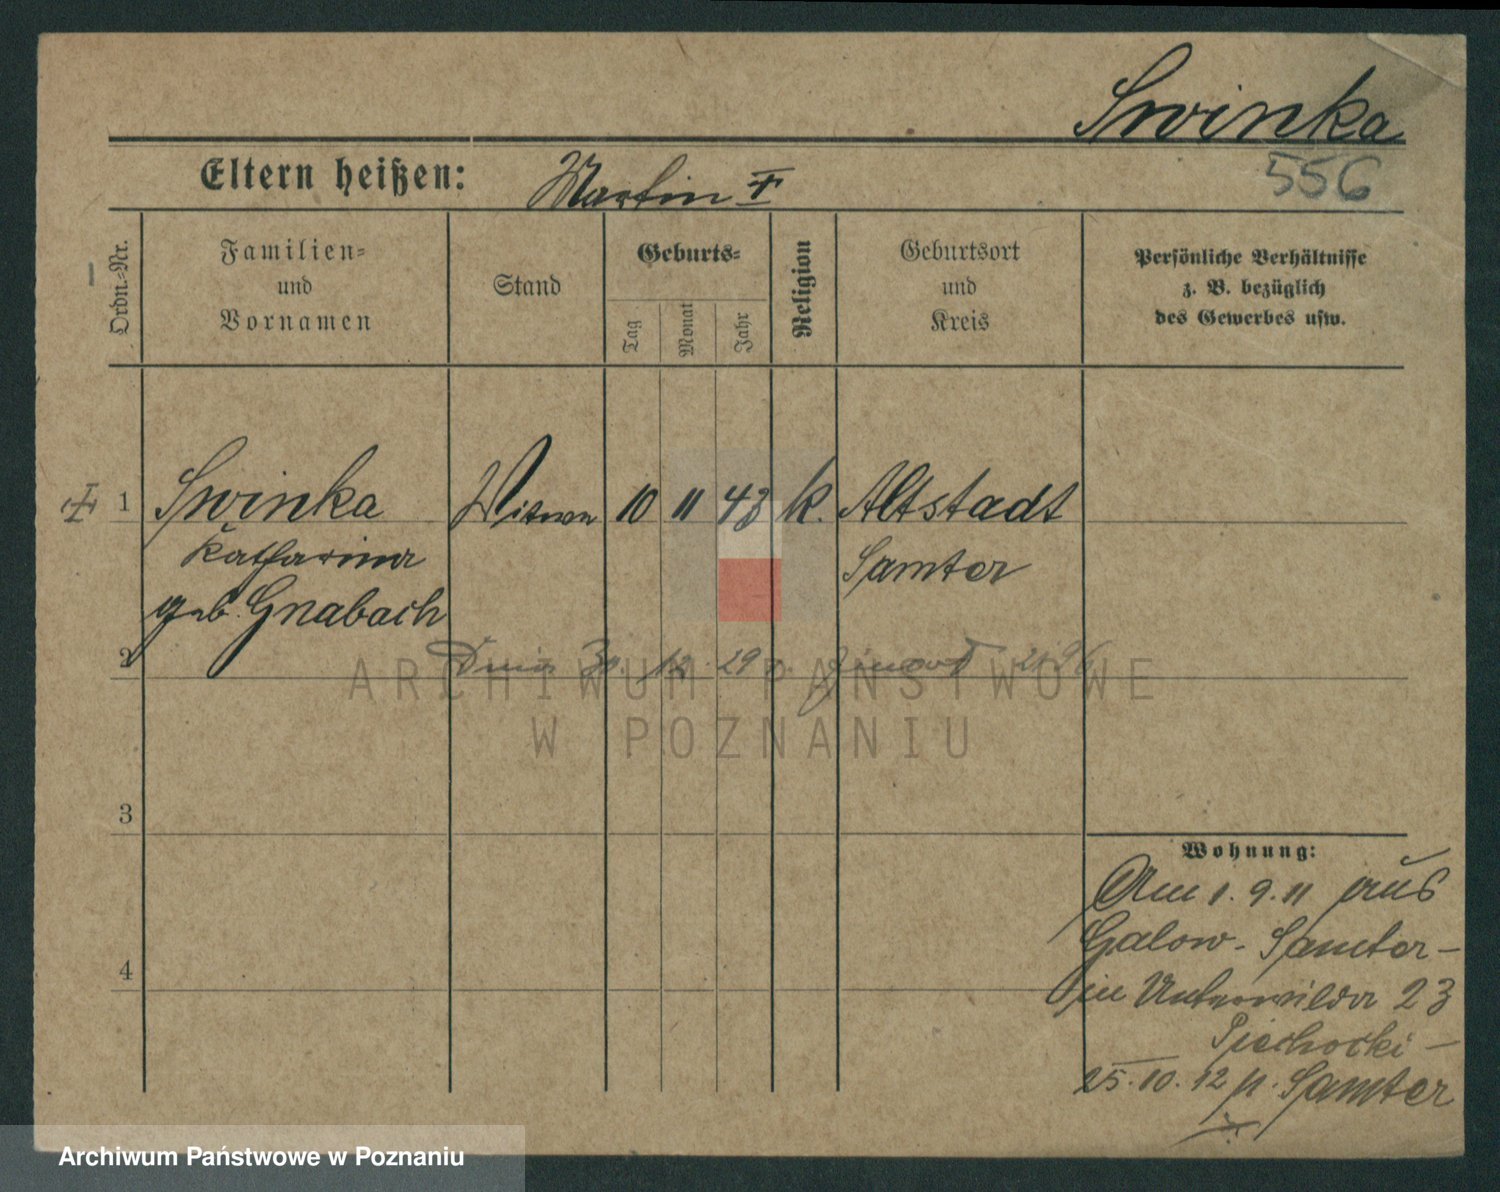 Swinka
556
Eltern heißen: Martin †
Ordn.-Nr.
Familien-
und
Vornamen
Stand
Geburts-
Tag
Monat
Jahr
Religion
Geburtsort
und
Kreis
Persönliche Verhältnisse
z. B. bezüglich
des Gewerbes usw.
1 Swinka Witwe 10 11 43 k. Altstadt
Katharina Samter
geb. Gnabach
2 Dnia 30. 12. 29
ARCHIWUM PAŃSTWOWE
W POZNANIU
3
Wohnung:
Am 1. 9. 11 aus
Galow - Samter -
4
in Unterwilda 23
Piechocki -
25. 10. 12 n. Samter
Archiwum Państwowe w Poznaniu